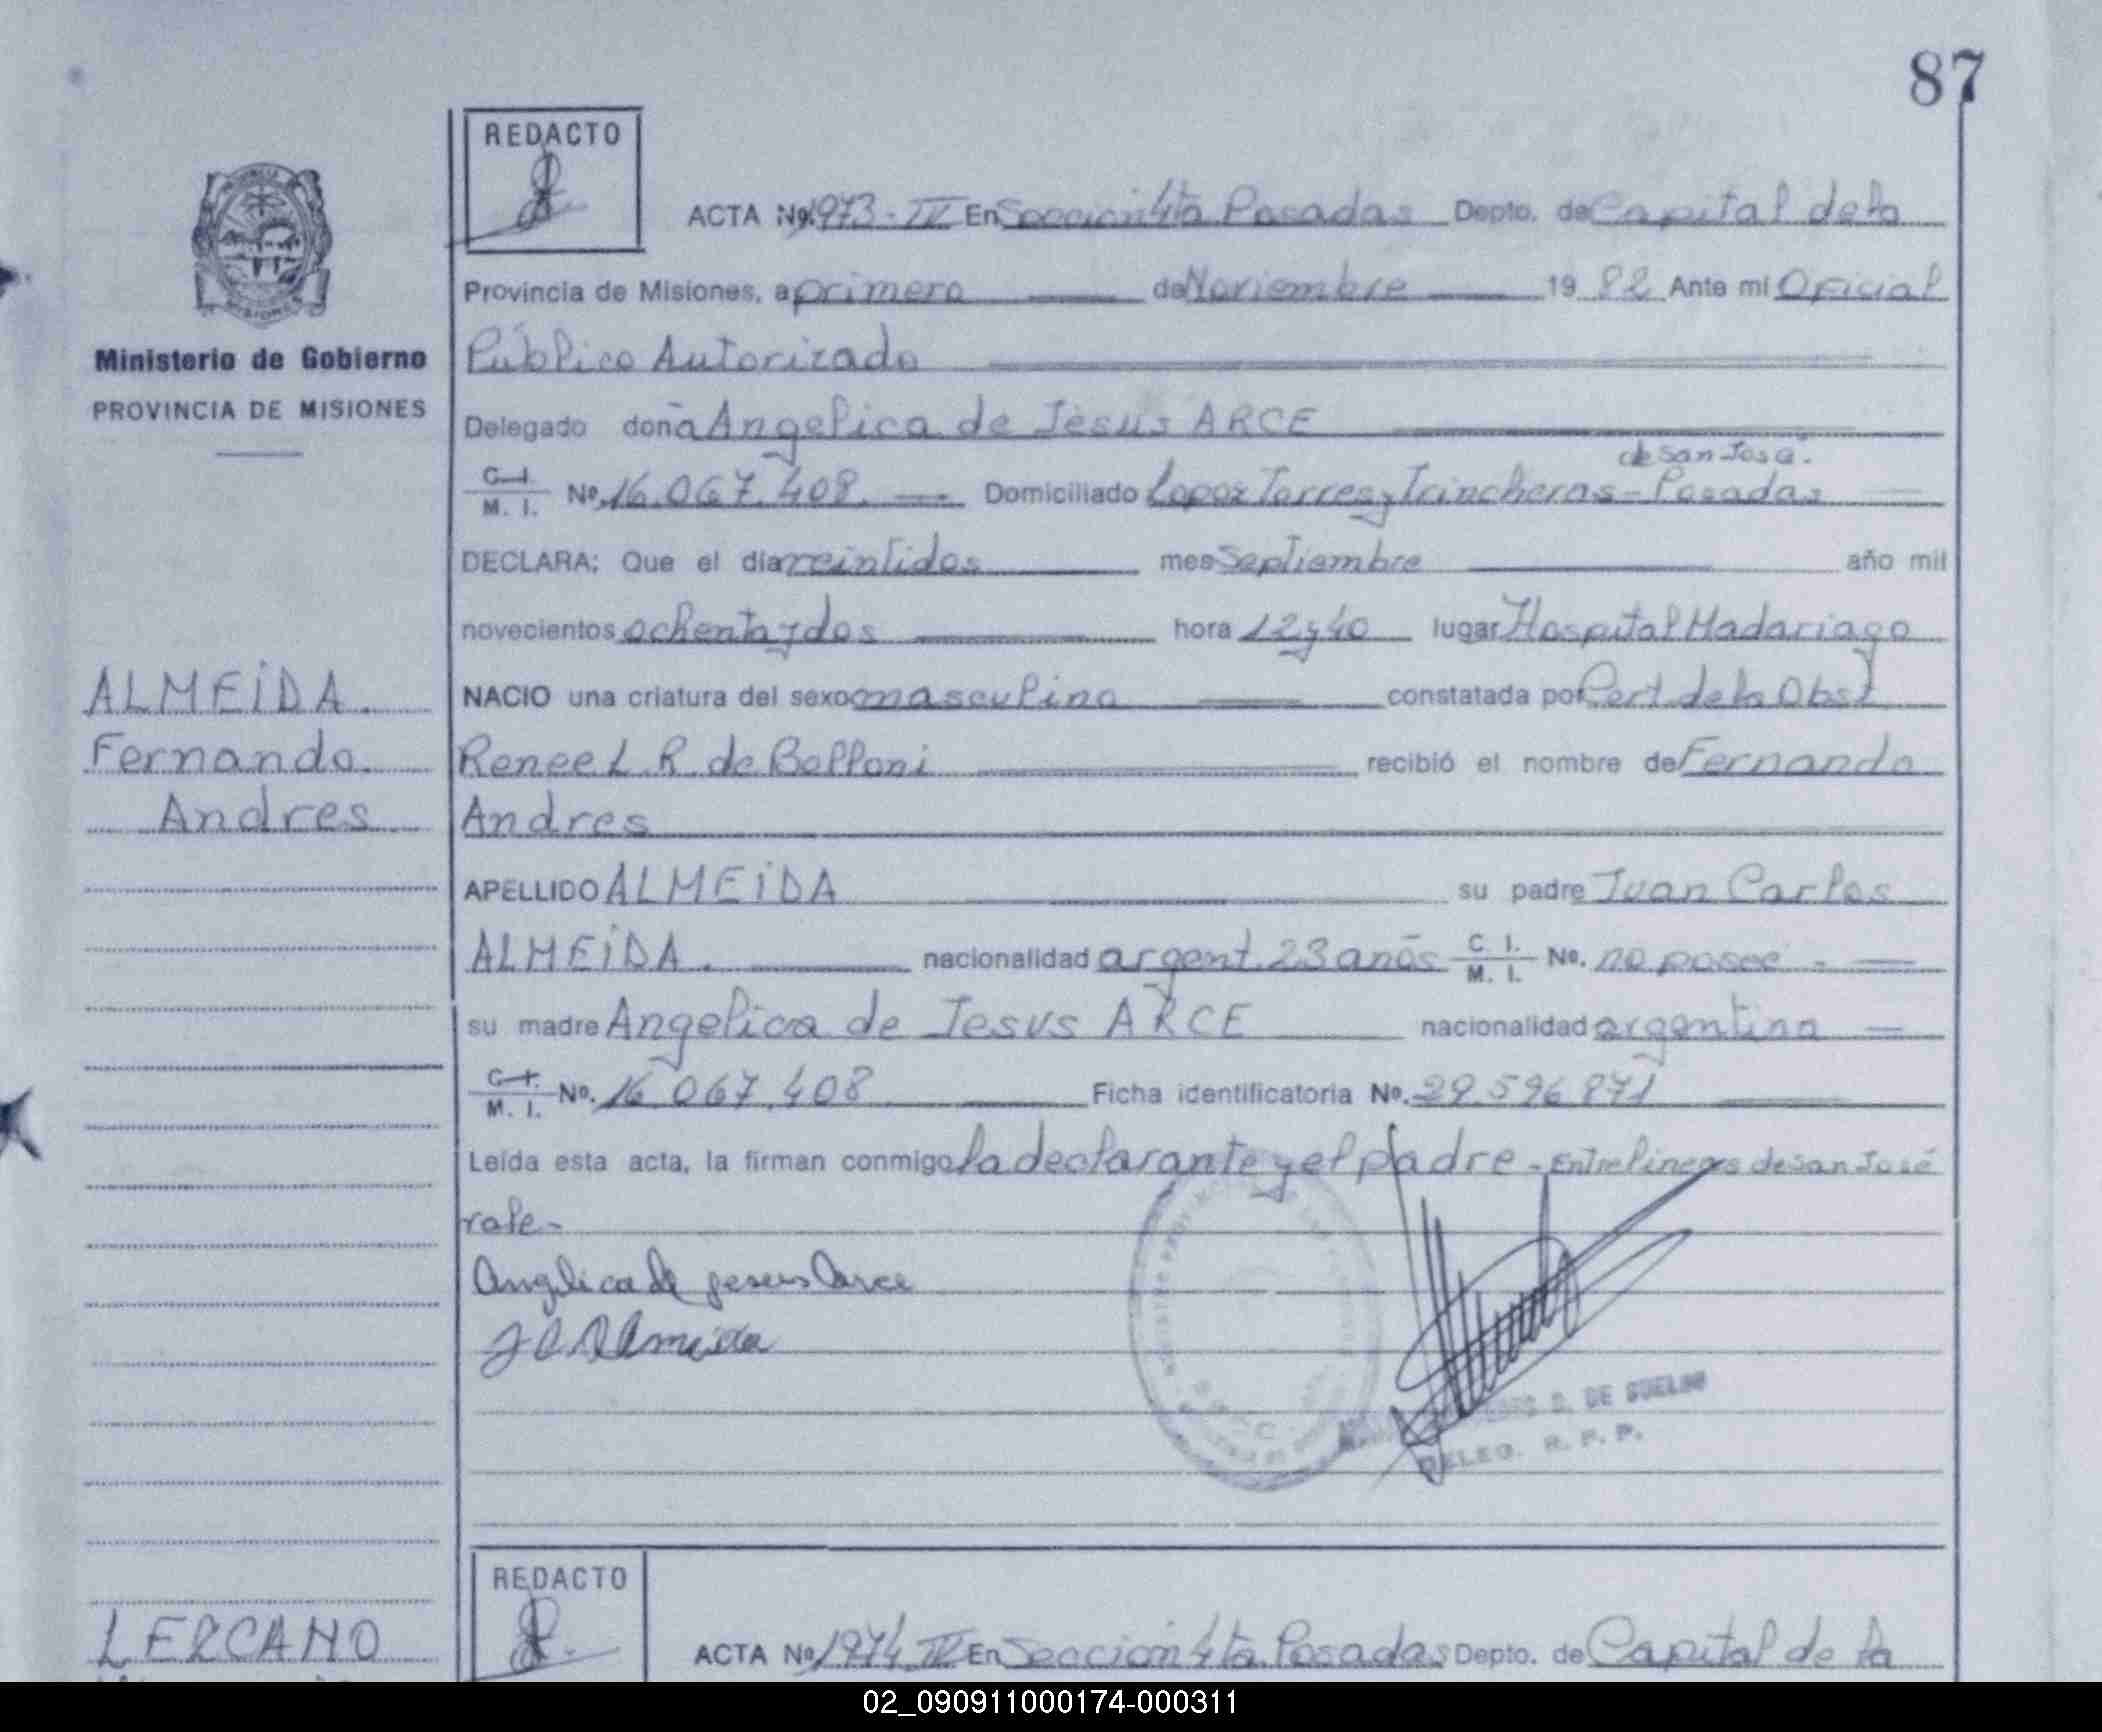 87
REDACTO
ACTA Nº 1973-IV En Sección 4ta Posadas Depto. de Capital de la
Provincia de Misiones, a primero de Noviembre 19 82 Ante mi Oficial
Ministerio de Gobierno
Público Autorizado
PROVINCIA DE MISIONES
Delegado doña Angelica de Jesus ARCE
de San José.
C. I. M. I. Nº 16.067.408. Domiciliado Lopez Torres y Trincheras - Posadas
DECLARA: Que el día veintidos mes Septiembre año mil
novecientos ochenta y dos hora 12 y 40 lugar Hospital Madariaga
ALMEIDA.
NACIO una criatura del sexo masculino constatada por Cert de la Obst
Fernando
Renee L. R. de Belloni recibió el nombre de Fernando
Andres
Andres
APELLIDO ALMEIDA su padre Juan Carlos
ALMEIDA. nacionalidad argent. 23 años C. I. M. I. No. no posee -
su madre Angelica de Jesus ARCE nacionalidad argentina
C. I. M. I. Nº. 16.067.408 Ficha identificatoria Nº. 29.596.871
Leída esta acta, la firman conmigo la declarante y el padre - Entre lineas de San José
vale -
Angelica de jesus Arce
J C Almeida
D. DE
DELEG. R. P. P.
REDACTO
LERCANO
ACTA Nº 1974 IV En Sección 4ta Posadas Depto. de Capital de la
02_090911000174-000311